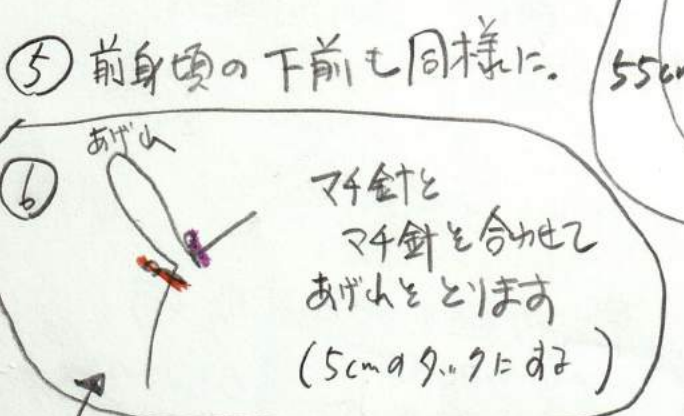 ⑤ 前身頃の下前も同様に。
55cm
⑥
あげ山
マチ針と
マチ針を合わせて
あげ山をとります
(5cmのタックにする)